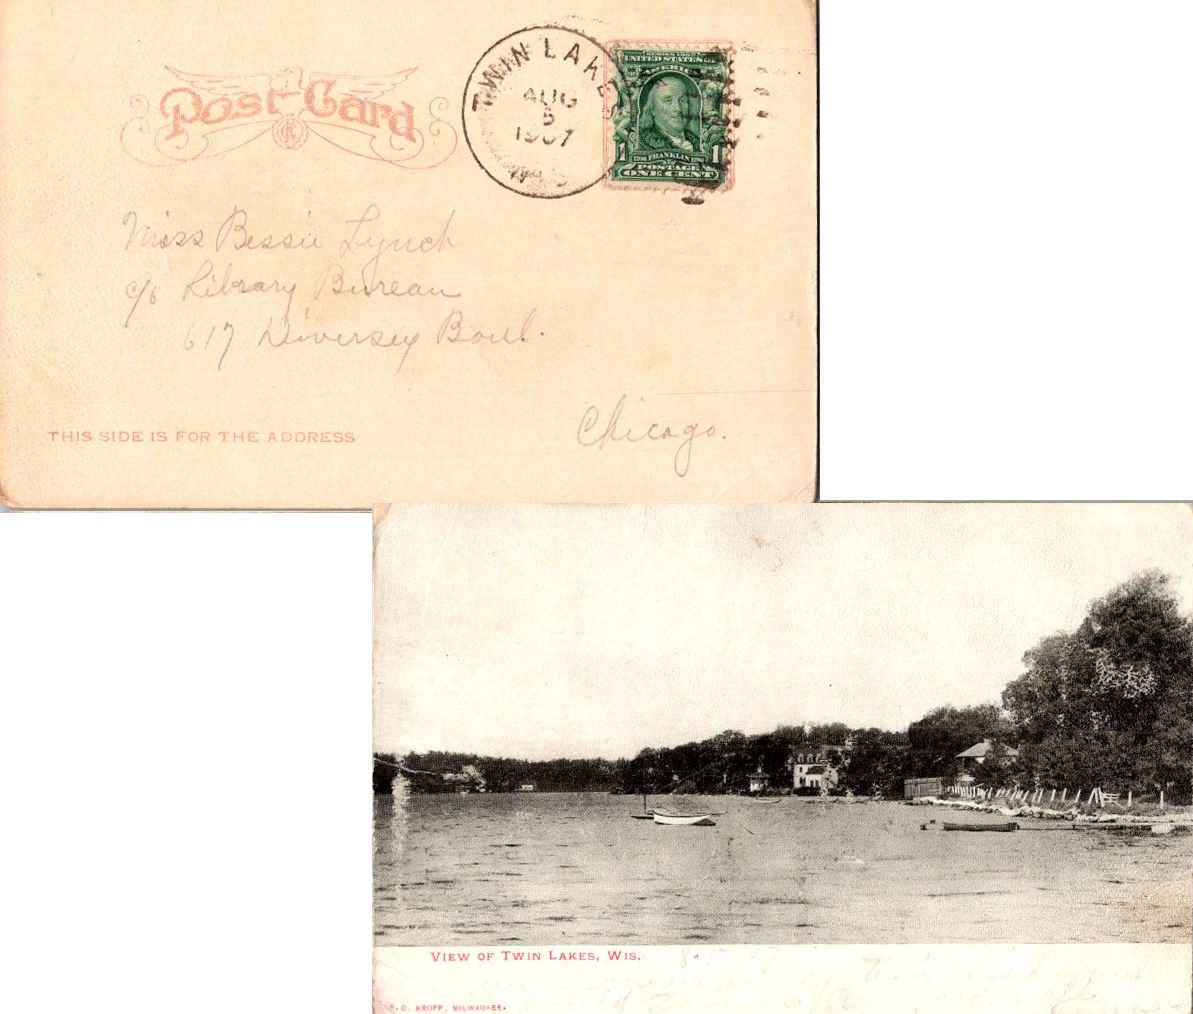 Post Card
TWIN LAKES
AUG
5
1907
SERIES 1902
UNITED STATES OF
AMERICA
1 FRANKLIN 1
POSTAGE
ONE CENT
Miss Bessie Lynch
c/o Library Bureau
617 Diversey Boul.
Chicago.
THIS SIDE IS FOR THE ADDRESS
VIEW OF TWIN LAKES, WIS.
E. C. KROPP, MILWAUKEE.